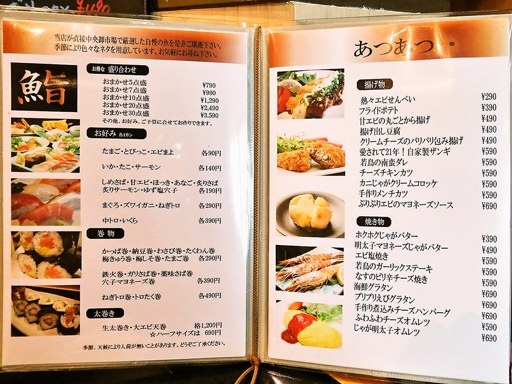 ¥490
当店が直接中央卸市場で厳選した自慢の魚を是非ご堪能下さい。
季節により色々なネタを用意しています。お気軽にお尋ね下さい。
鮨
お得な 盛り合わせ
おまかせ5点盛 ¥790
おまかせ7点盛 ¥990
おまかせ10点盛 ¥1,290
おまかせ20点盛 ¥2,490
おまかせ30点盛 ¥3,590
その他、お好み、ご予算に合せてお作りできます。
お好み 各1カン
たまご・とびっこ・エビまよ 各90円
いか・たこ・サーモン 各140円
しめさば・甘エビ・ほっき・あなご・炙りさば
炙りサーモン・ゆず塩穴子 各190円
まぐろ・ズワイガニ・ねぎトロ 各290円
中トロ・いくら 各390円
巻物
かっぱ巻・納豆巻・わさび巻・たくわん巻
梅きゅう巻・梅しそ巻・たまご巻 各290円
鉄火巻・ガリさば巻・薬味さば巻
穴子マヨネーズ巻 各390円
ねぎトロ巻・トロたく巻 各490円
太巻き
生太巻き・大エビ天巻 各1,200円
☆ハーフサイズは 690円
季節、天候により入荷が無いことがあります。どうぞご了承ください。
あつあつ・・
揚げ物
熱々エビせんべい ¥290
フライドポテト ¥390
甘エビの丸ごとから揚げ ¥490
揚げ出し豆腐 ¥490
クリームチーズのパリパリ包み揚げ ¥490
愛されて21年!自家製ザンギ ¥590
若鳥の南蛮ダレ ¥590
チーズチキンカツ ¥590
カニじゃがクリームコロッケ ¥590
手作りメンチカツ ¥590
ぷりぷりエビのマヨネーズソース ¥690
焼き物
ホクホクじゃがバター ¥390
明太子マヨネーズじゃがバター ¥490
エビ塩焼き ¥590
若鳥のガーリックステーキ ¥590
なすのピリ辛チーズ焼き ¥590
海鮮グラタン ¥590
プリプリえびグラタン ¥590
手作り煮込みチーズハンバーグ ¥590
ふわふわチーズオムレツ ¥590
じゃが明太子オムレツ ¥590